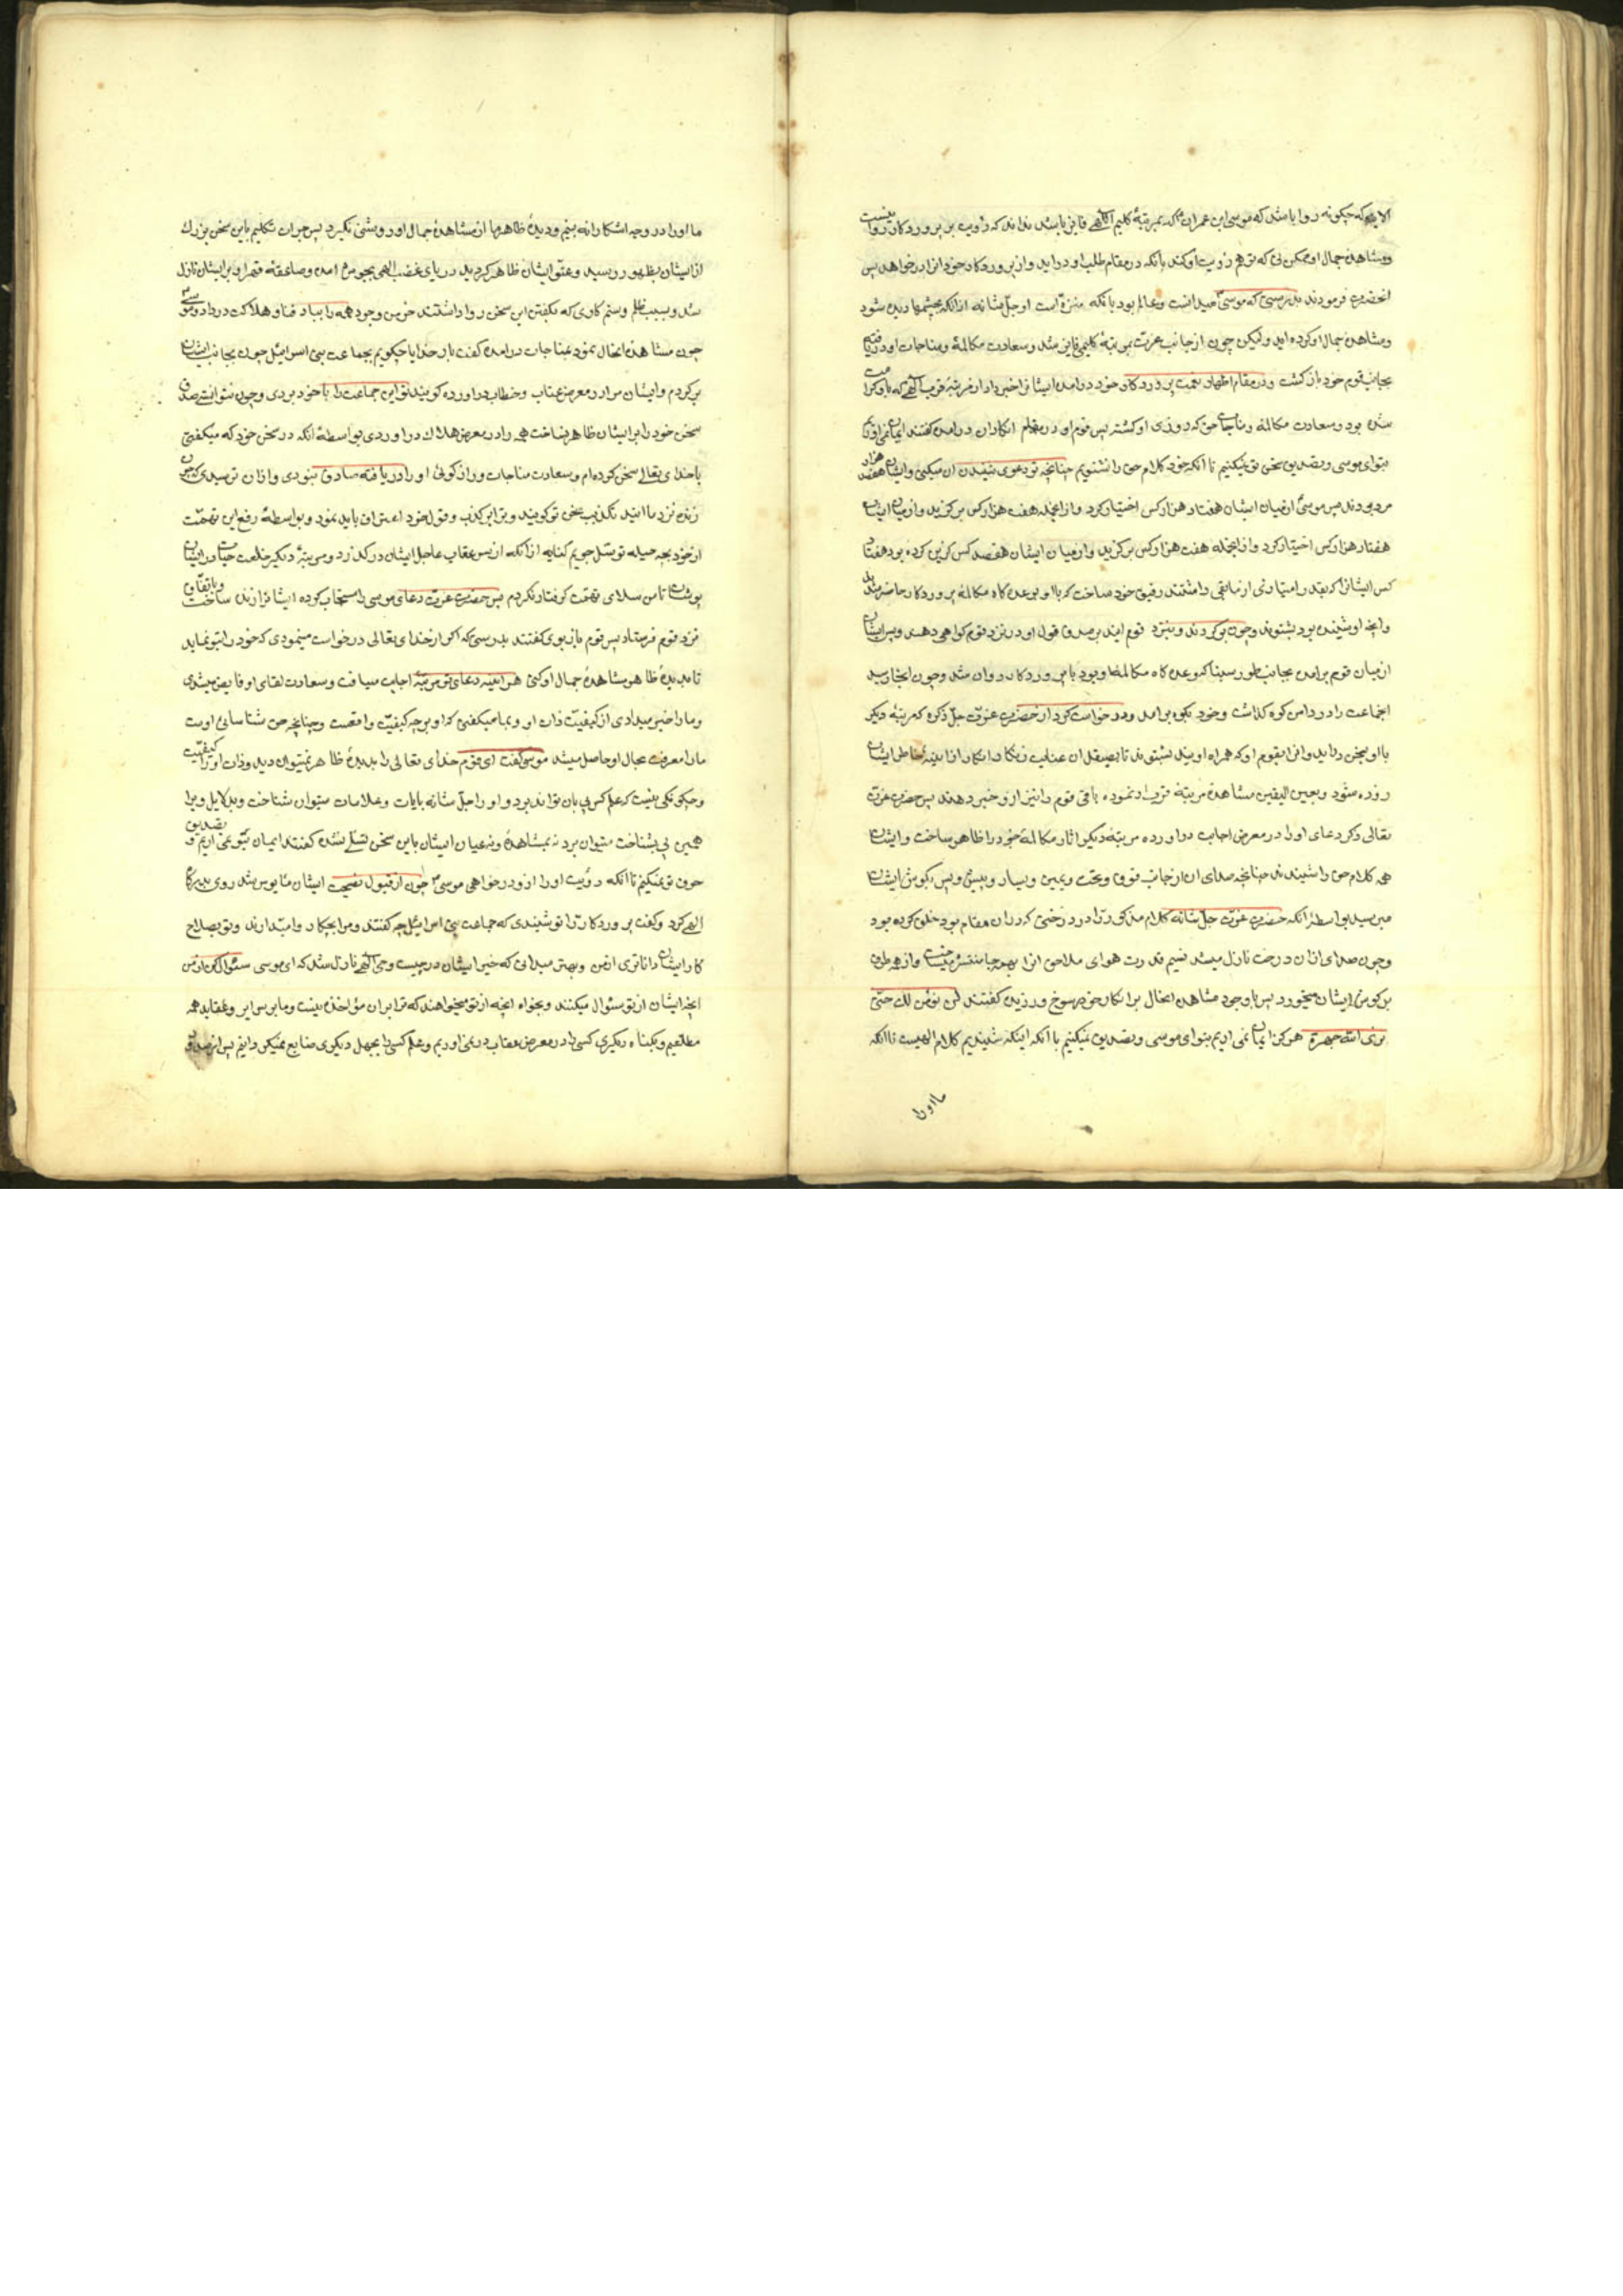 الایه که چکونه روا باشد که موسی ابن عمران که بمرتبهٔ کلیم اللهی فایز باشد نداند که رؤیت بر پروردکار روا نیست
و مشاهدهٔ جمال او ممکن نی که توهم رؤیت او کند بآنکه در مقام طلب او دراید و از پروردکار خود انرا درخواهد پس
انحضرت فرمودند بدرستی که موسی میدانست و عالم بود بانکه منزه است او جل شانه ازانکه بچشمها دیده شود
و مشاهدهٔ جمال او کرده اید ولیکن چون از جانب عزت بمرتبهٔ کلیمی فایز شد و سعادت مکالمه و مناجات او دریافته
بجانب قوم خود بازکشت و در مقام اظهار نعمت پروردکار خود درامده ایشانرا خبر داد از مرتبهٔ قرب الهی که باو کرامت
شده بود و سعادت مکالمه و مناجات حق که روزی او کشته پس قوم او در مقام انکار ان درامده کفتند ایمان نمی اوریم
بتو ای موسی و تصدیق سخن تو نمیکنیم تا آنکه خود کلام حق را نشنویم چنانچه تو دعوی شنیدن ان میکنی و ایشان هفتصد هزار
مرد بودند پس موسی از میان ایشان هفتاد هزار کس اختیار کرد و از انجمله هفت هزار کس برکزید و از میان ایشان
هفتاد هزار کس اختیار کرد و از انجمله هفت هزار کس برکزید و از میان ایشان هفتصد کس کزین کرده بود هفتاد
کس ایشانرا که بقدر امتیازی از مابقی داشتند رفیق خود ساخت که با او بوعده کاه مکالمهٔ پروردکار حاضر شدند
و انچه او شنیده بود بشنوند و چون برکردند و بنزد قوم ایند بر صدق قول او در نزد قوم کواهی دهند و پس ایشان
از میان قوم برامده بجانب طور سینا که وعده کاه مکالمهٔ او بود با پروردکار روان شد و چون انجا رسید
انجماعت را در دامن کوه کذاشت و خود بکوه برامد و درخواست کرد از حضرت عزت جل ذکره که مرتبهٔ دیکر
با او بسخن دراید و انرا بقوم او که همراه او یند بشنواند تا بصیقل ان عنایت زنکار انکار از اینهٔ خاطر ایشان
زدوده شود و بعین الیقین مشاهدهٔ مرتبهٔ قرب او نموده باقی قوم را نیز ازو خبر دهند پس حضرت عزت
تعالی ذکره دعای او را در معرض اجابت دراورده مرتبهٔ دیکر اثار مکالمهٔ خود را ظاهر ساخت و ایشان
همه کلام حق را شنیدند چنانچه صدای ان از جانب فوق و تحت و یمین و یسار و پیش و پس بکوش ایشان
میرسید بواسطهٔ انکه حضرت عزت جل شانه کلام مذکور را در درختی که در ان مقام بود خلق کرده بود
و چون صدای ازان درخت نازل میشد نسیم قدرت هوای ملاحق انرا بهرجا منتشر میساخت و از هر طرف
بر کوش ایشان میخورد پس با وجود مشاهده اینحال بر انکار حق رسوخ ورزیده کفتند لن نؤمن لک حتی
نری الله جهرة هرکز ایمان نمی اریم بتو ای موسی و تصدیق نمیکنیم با آنکه اینکه شنیدیم کلام الهیست تا انکه
ما او را
ما او را در وجه اشکارا نه بینیم و دیدهٔ ظاهر ما از مشاهدهٔ جمال او روشنی نکیرد پس چون تکلیم باین سخن بزرك
از ایشان بظهور رسید و عتو ایشان ظاهر کردید دریای غضب الهی بجوش امده و صاعقهٔ قهر او بر ایشان نازل
شد و بسبب ظلم و ستم کاری که بکفتن این سخن روا داشتند خرمن وجود همه را بباد فنا و هلاکت درداد و موسی
چون مشاهدهٔ اینحال نمود بمناجات درامده کفت بارخدایا چکویم بجماعت بنی اسرائیل چون بجانب ایشان
برکردم و ایشان مرا در معرض عتاب و خطاب دراورده کویند تو این جماعت را با خود بردی و چون نتوانستی صدق
سخن خود را بر ایشان ظاهر ساخت همه را در معرض هلاك دراوردی بواسطهٔ انکه در سخن خود که میکفتی
با خدای تعالی سخن کرده ام و سعادت مناجات و رازکوئی او را دریافته صادق نبودی و ازان ترسیدی که چون
زنده نزد ما ایند تکذیب سخن تو کویند و ترا بر کذب و قول خود اعتراف باید نمود و بواسطهٔ رفع این تهمت
از خود بچه حیله توسل جویم کنایه از آنکه از سر عقاب عاجل ایشان درکذر و مرتبهٔ دیکر خلعت حیات در ایشان
پوشان تا من بسلای تهمت کرفتار نکردم پس حضرت عزت دعای موسی را مستجاب کرده ایشانرا زنده ساخت و باتفاق
نزد قوم فرستاد پس قوم باز بوی کفتند بدرستی که اکر از خدای تعالی درخواست مینمودی که خود را بتو نماید
تا بدیدهٔ ظاهر مشاهدهٔ جمال او کنی هر اینه دعای تو مرتبهٔ اجابت مییافت و سعادت لقای او فایض میشدی
و ما را خبر میدادی از کیفیت ذات او و بما میکفتی که او بر چه کیفیت واقعست و چنانچه حق شناسائی اوست
ما را معرفت بحال او حاصل میشد موسی کفت ای قوم خدای تعالی را بدیدهٔ ظاهر نمیتوان دید و ذات او را کیفیت
و چکونکی نیست که علم کس پی بان تواند برد و او را جل شانه بایات و علامات میتوان شناخت و بدلایل و براهین
پی بشناخت میتوان برد نه بمشاهده و نه عیان ایشان باین سخن تسلی نشده کفتند ایمان بتو نمی اریم و تصدیق
حرف تو نمیکنیم تا آنکه رؤیت او را ازو درخواهی موسی چون از قبول نصیحت ایشان مأیوس شد روی بدرکاه
الهی کرد و کفت پروردکارا تو شنیدی که جماعت بنی اسرائیل چه کفتند و مرا بچکار وامیدارند و تو بصلاح
کار ایشان داناتری از من و بهتر میدانی که خیر ایشان در چیست وحی الهی نازل شد که ای موسی سئوال کن از من
انچه ایشان از تو سئوال میکنند و بخواه انچه از تو میخواهند که ترا بر ان مؤاخذه نیست و ما بر سرایر و عقاید همه
مطلعیم و بکناه دیکری کسی را در معرض عقاب درنمی اوریم و علم کسی را بجهل دیکری ضایع نمیکردانیم پس از صدور